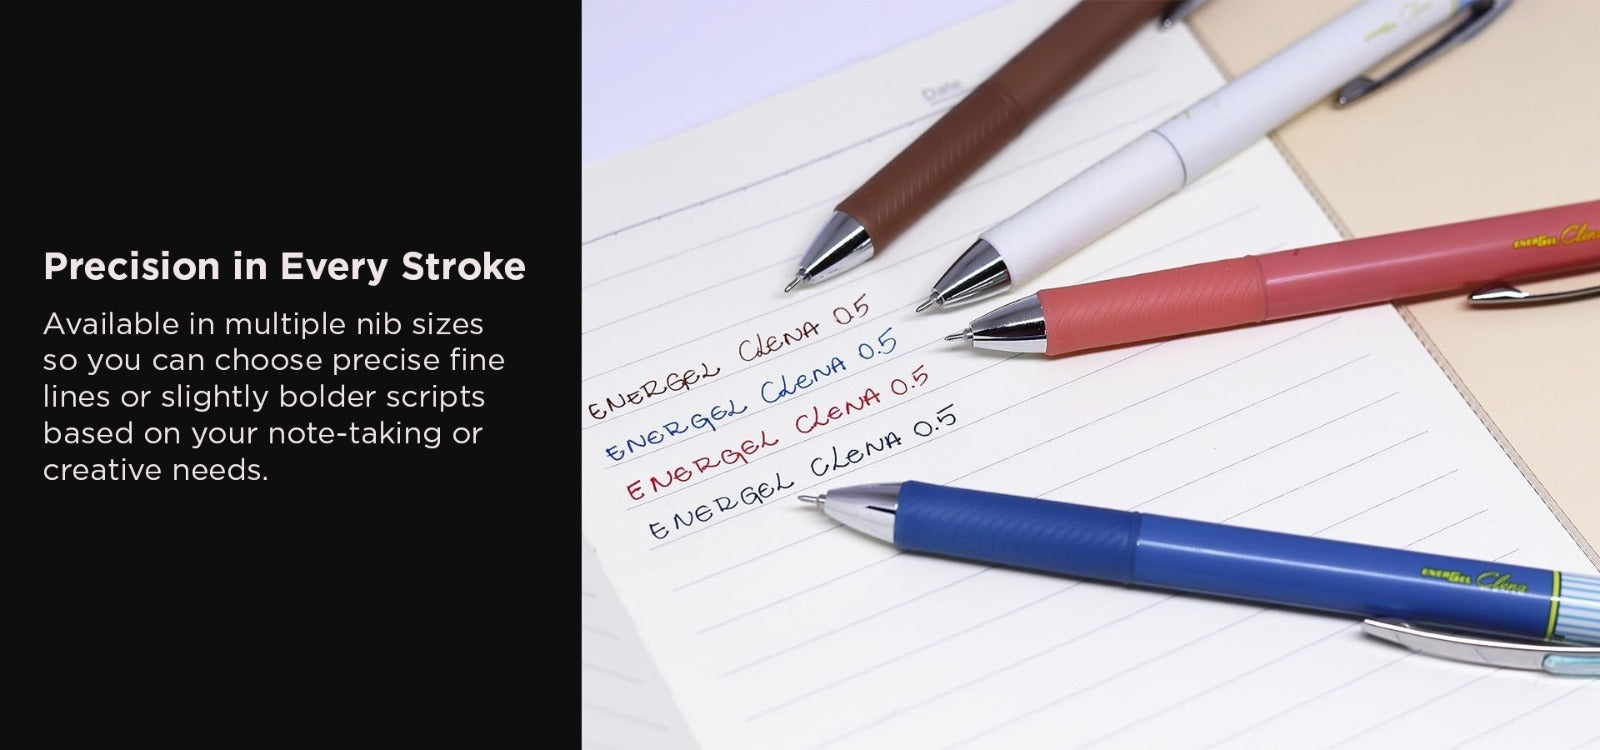 Precision in Every Stroke
Available in multiple nib sizes
so you can choose precise fine
lines or slightly bolder scripts
based on your note-taking or
creative needs.
Date
ENERGEL Clena
ENERGEL Clena
ENERGEL CLENA 0.5
ENERGEL CLENA 0.5
ENERGEL CLENA 0.5
ENERGEL CLENA 0.5
ENERGEL Clena